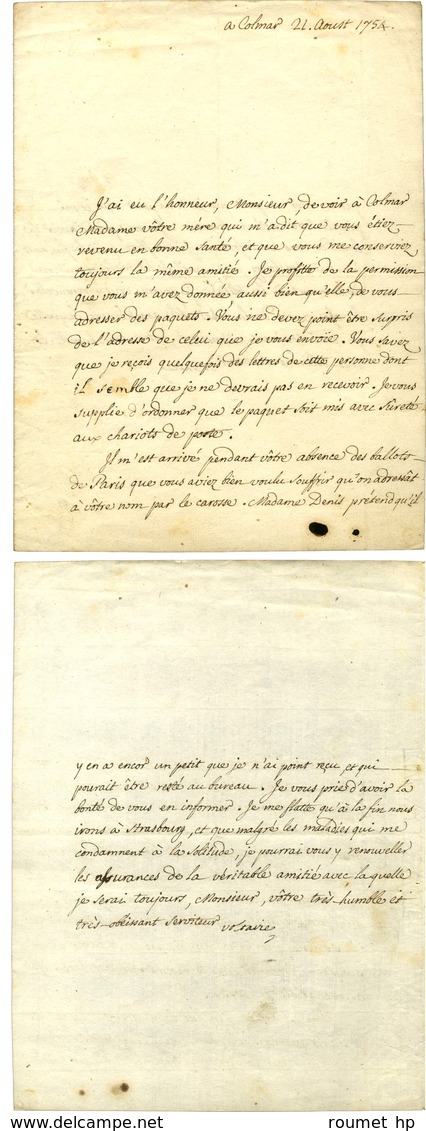 a Colmar 21. Aoust 1754.
J'ai eu l'honneur, Monsieur, de voir à Colmar
Madame vôtre mére qui m'a dit que vous êtiez
revenu en bonne santé, et que vous me conserviez
toujours la même amitié. Je profitte de la permission
que vous m'avez donnée, aussi bien qu'elle, de vous
adresser des paquets. Vous ne devez point être surpris
de l'adresse de celui que je vous envoie. Vous savez
que je reçois quelquefois des lettres de cette personne dont
il semble que je ne devrais pas en recevoir. Je vous
supplie d'ordonner que le paquet soit mis avec sûreté
aux chariots de poste.
Il m'est arrivé pendant vôtre absence des ballots
de Paris que vous aviez bien voulu souffrir qu'on adressât
à vôtre nom par le carosse. Madame Denis prétend qu'il
y en a encor un petit que je n'ai point reçu, et qui
pourait être resté au bureau. Je vous prie d'avoir la
bonté de vous en informer. Je me flatte qu'à la fin nous
irons à Strasbourg, et que malgré les maladies qui me
condamnent à la solitude, je pourrai vous y renouveller
les assurances de la véritable amitié avec la quelle
je serai toujours, Monsieur, vôtre très humble et
très obéissant serviteur voltaire
© roumet hp